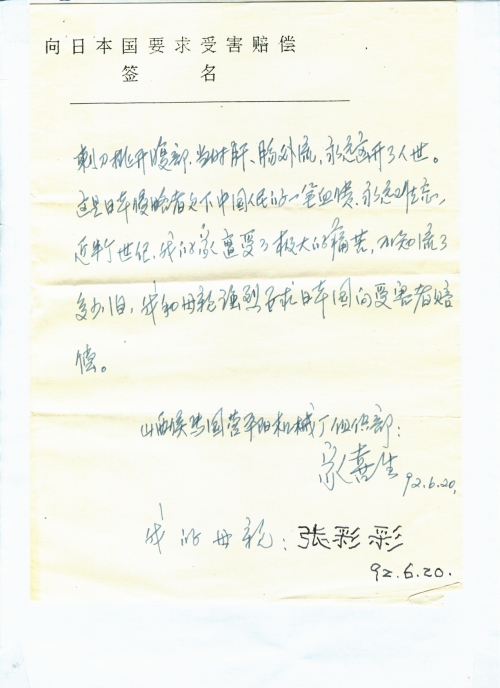 向日本国要求受害赔偿
签名
刺刀挑开腹部，当时肝、肠外流，永远离开了人世。
这是日本侵略者欠下中国人民的一笔血债，永远难忘，
近半个世纪，我的家遭受了极大的痛苦，不知流了
多少泪，我和母亲强烈要求日本国向受害者赔
偿。
山西侯马国营平阳机械厂组织部：
家喜生 92.6.20.
我的母亲：张彩彩
92.6.20.